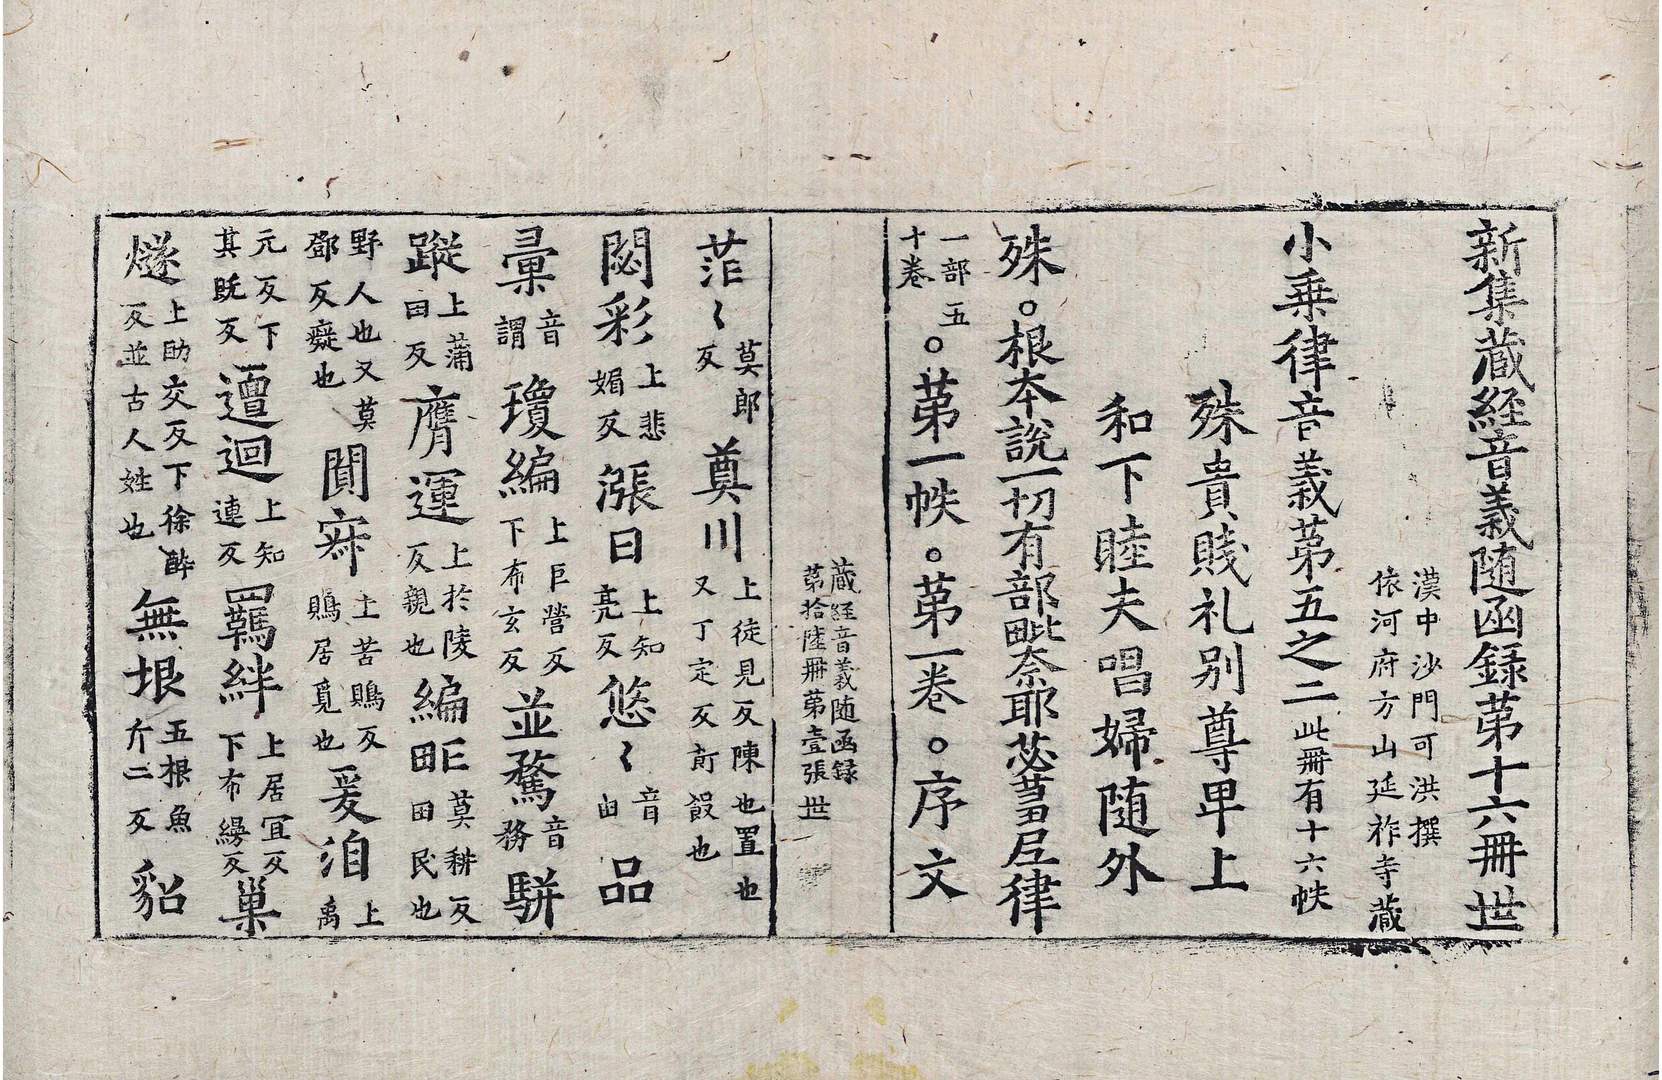 新集藏経音義随函録第十六冊 世
漢中沙門可洪撰
依河府方山延祚寺藏
小乗律音義第五之二 此冊有十六帙
殊貴賤礼别尊卑上
和下睦夫唱婦随外
殊。根本説一切有部毗奈耶苾蒭尼律
一部五十卷。第一帙。第一卷。序文
藏経音義随函録
第拾陸冊第壹張 世
茫〻 莫郎反 奠川 上徒見反陳也置也又丁定反 也
閟彩 上悲媚反 漲日 上知亮反 悠〻 音由 品
彚 音謂 瓊編 上巨營反下布玄反 並騖 音務 騈
蹤 上蒲田反 膺運 上於陵反親也 編甿 莫耕反田民也
野人也又莫鄧反癡也 闃寂 上苦鵙反鵙居覓也 爰洎 上
元反下其既反 邅迴 上知連反 羈絆 上居冝反下布縵反 巢
燧 上助交反下徐醉反並古人姓也 無垠 五根魚斤二反 貂